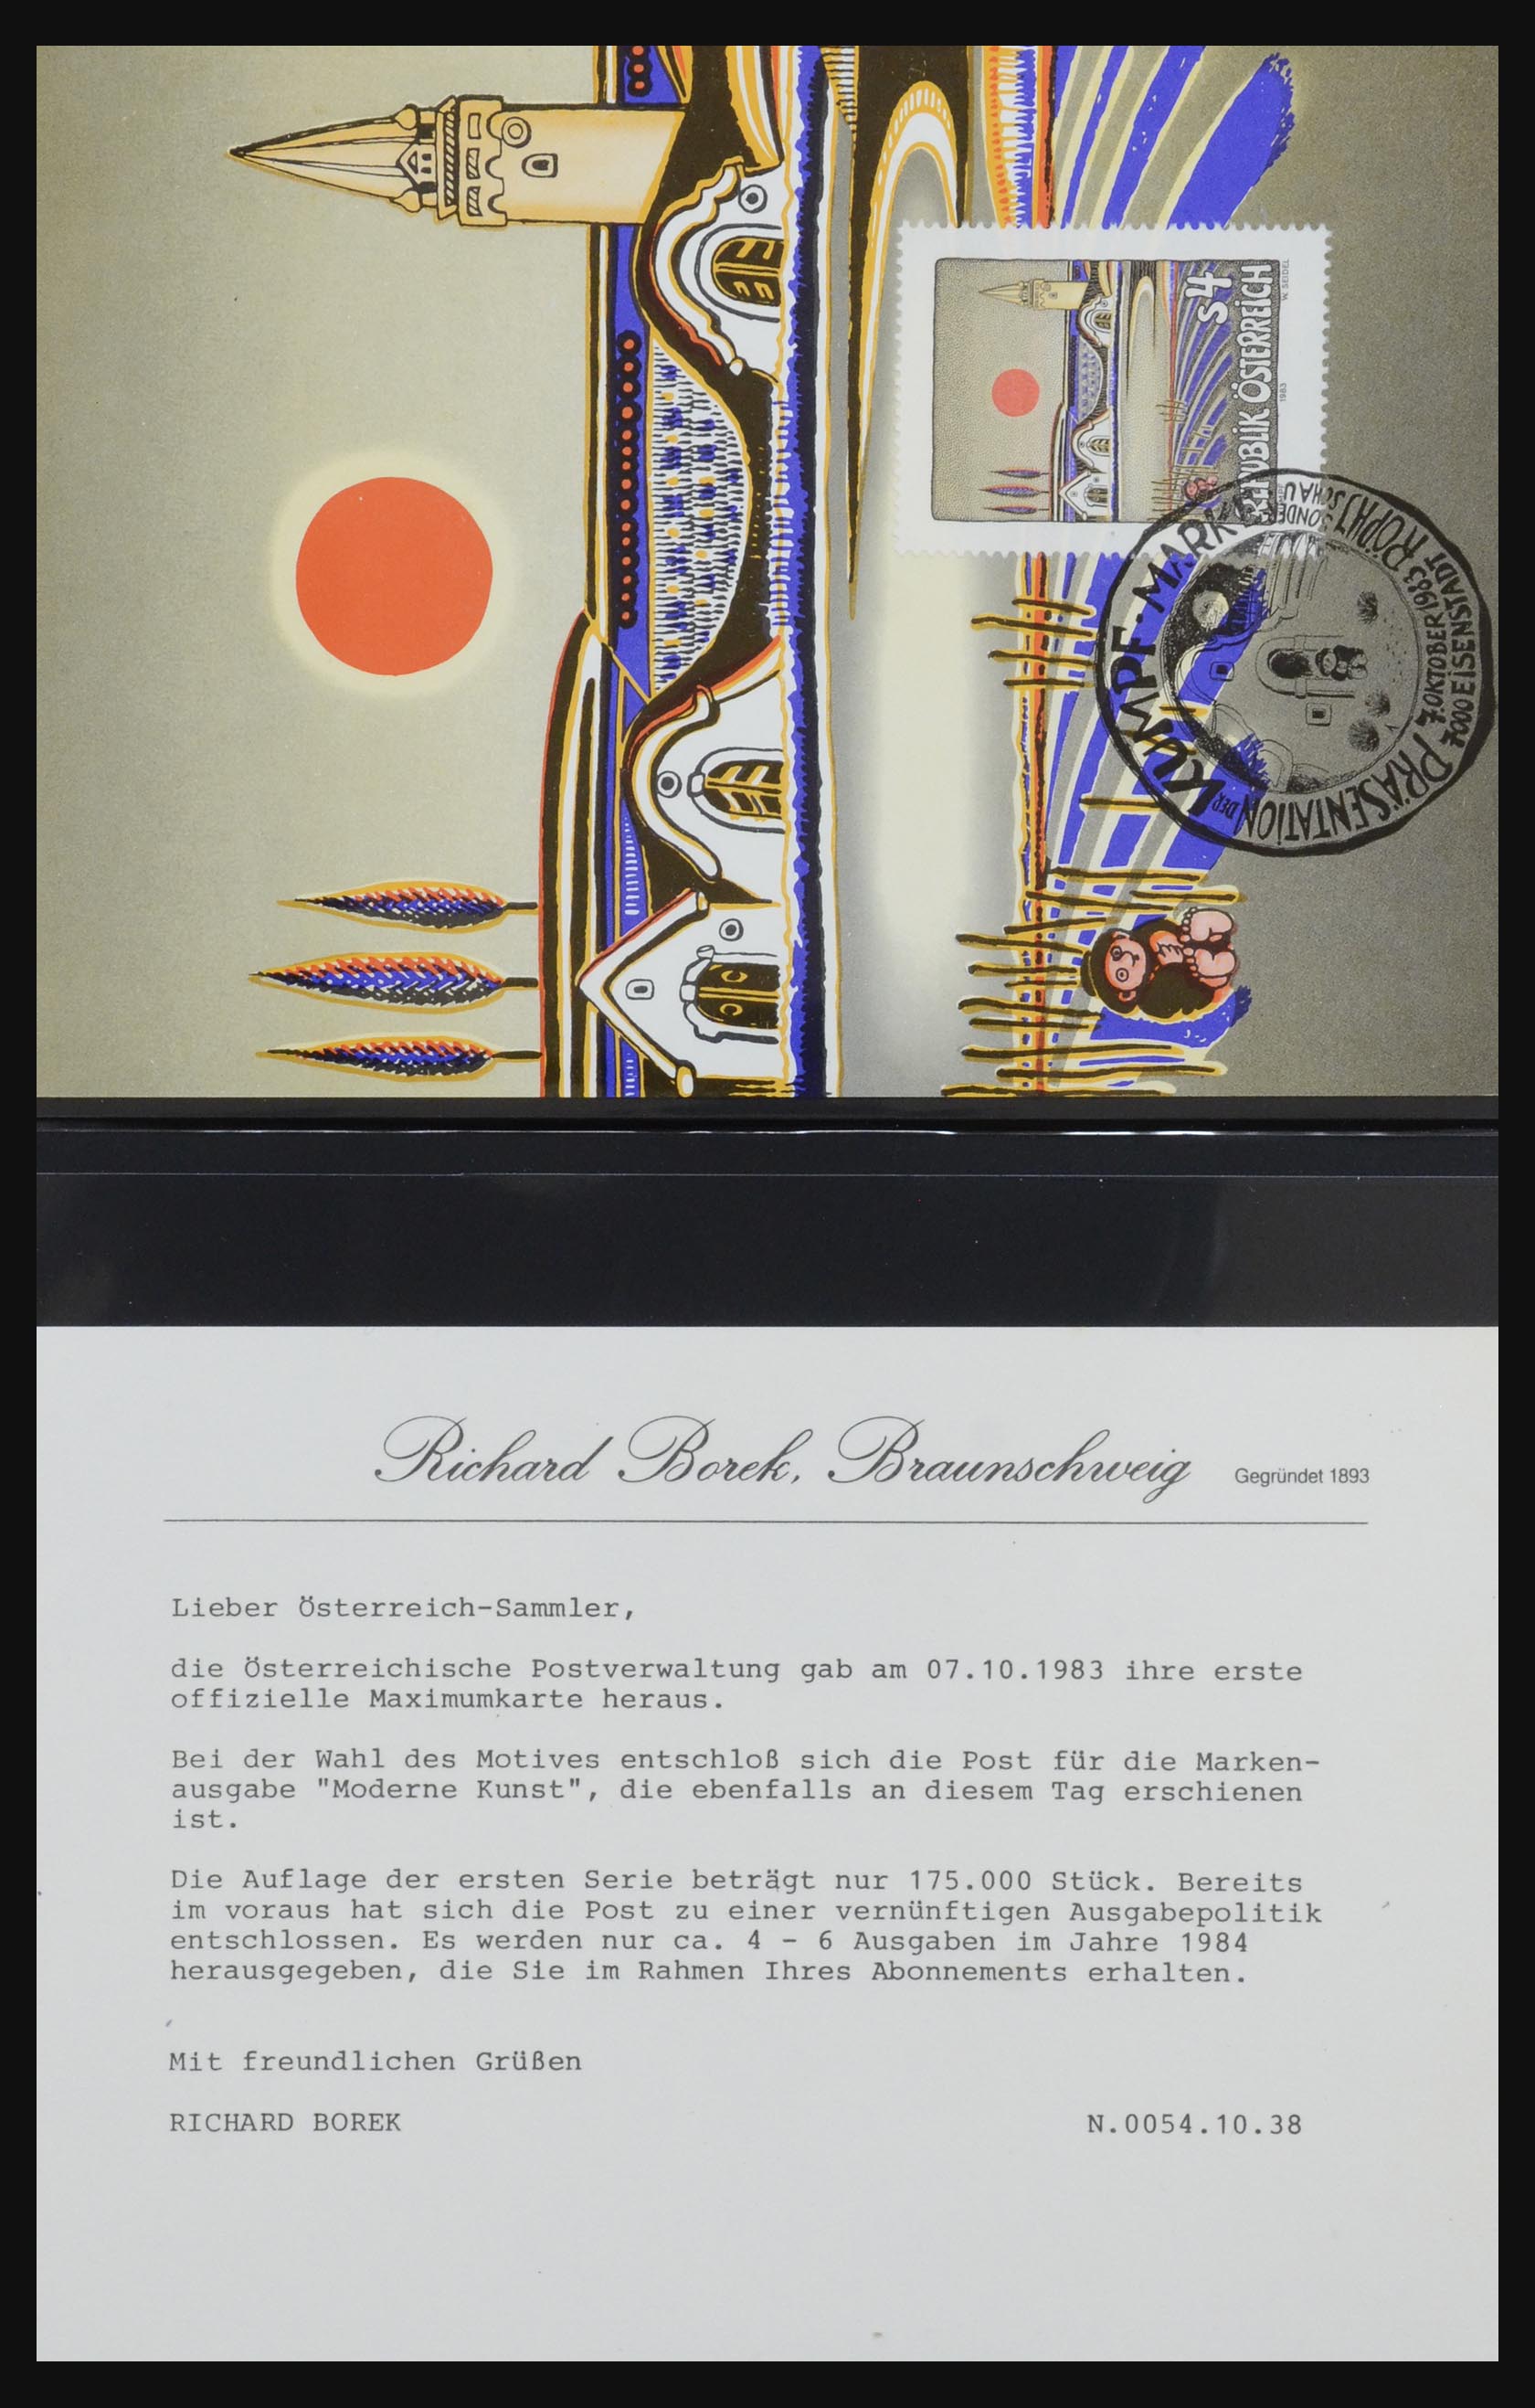 S4
REPUBLIK ÖSTERREICH
1983
W. SEIDEL
PRÄSENTATION DER KUMPF-MARKE
SONDER
SCHAU
7. OKTOBER 1983
7000 EISENSTADT
Richard Borek, Braunschweig Gegründet 1893
Lieber Österreich-Sammler,
die Österreichische Postverwaltung gab am 07.10.1983 ihre erste
offizielle Maximumkarte heraus.
Bei der Wahl des Motives entschloß sich die Post für die Marken-
ausgabe "Moderne Kunst", die ebenfalls an diesem Tag erschienen
ist.
Die Auflage der ersten Serie beträgt nur 175.000 Stück. Bereits
im voraus hat sich die Post zu einer vernünftigen Ausgabepolitik
entschlossen. Es werden nur ca. 4 - 6 Ausgaben im Jahre 1984
herausgegeben, die Sie im Rahmen Ihres Abonnements erhalten.
Mit freundlichen Grüßen
RICHARD BOREK N.0054.10.38